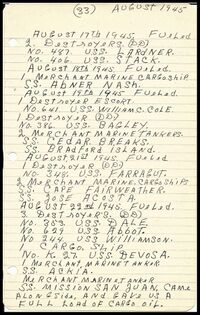 (33) AUGUST 1945
AUGUST 17th 1945. FUELED.
2. DESTROYERS. (DD)
NO. 487. U.S.S. LARDNER.
NO. 406. U.S.S. STACK.
AUGUST 18th 1945. FUELED.
1. MERCHANT MARINE CARGO SHIP.
S.S. ABNER NASH.
AUGUST 19th 1945. FUELED.
1 DESTROYER ESCORT.
NO. 641. U.S.S. WILLIAM C. COLE.
1 DESTROYER (DD)
NO. 386. U.S.S. BAGLEY.
2 MERCHANT MARINE TANKERS.
S.S. CEDAR BREAKS.
S.S. BRADFORD ISLAND.
AUGUST 21st 1945. FUELED.
1 DESTROYER (DD)
NO. 348. U.S.S. FARRAGUT.
2 MERCHANT MARINE CARGO SHIPS
S.S. CAPE FAIRWEATHER.
S.S. JOSE ACOSTA.
AUGUST 22nd 1945. FUELED.
3 DESTROYERS. (DD)
NO. 353 U.S.S. DALE.
NO. 629 U.S.S. ABBOT.
NO. 244. U.S.S. WILLIAMSON.
1 CARGO SHIP.
NO. K. 27. U.S.S. DEVOSA.
1 MERCHANT MARINE TANKER
S.S.
MERCHANT MARINE TANKER
S.S. MISSION SAN JUAN, CAME
ALONGSIDE, AND GAVE US A
FULL LOAD OF CARGO OIL.